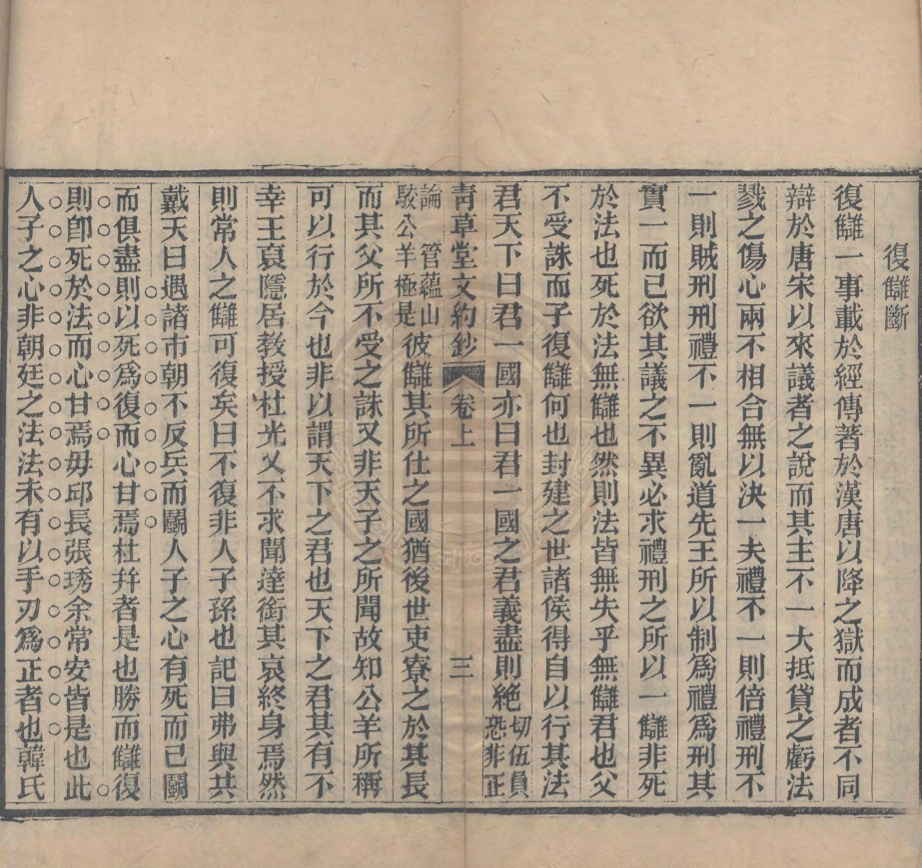 復讎斷
復讎一事載於經傳著於漢唐以降之獄而成者不同
辯於唐宋以來議者之說而其主不一大抵貸之虧法
戮之傷心兩不相合無以決一夫禮不一則倍禮刑不
一則賊刑刑禮不一則亂道先王所以制爲禮爲刑其
實一而已欲其議之不異必求禮刑之所以一讎非死
於法也死於法無讎也然則法皆無失乎無讎君也父
不受誅而子復讎何也封建之世諸侯得自以行其法
君天下曰君一國亦曰君一國之君義盡則絕切伍員恐非正
青草堂文約鈔 卷上 三
論 管蘊山駁公羊極是彼讎其所仕之國猶後世吏寮之於其長
而其父所不受之誅又非天子之所聞故知公羊所稱
可以行於今也非以謂天下之君也天下之君其有不
幸王裒隱居教授杜光乂不求聞達銜其哀終身焉然
則常人之讎可復矣曰不復非人子孫也記曰弗與共
戴天曰遇諸市朝不反兵而鬭人子之心有死而已鬭
而俱盡則以死爲復而心甘焉杜幷者是也勝而讎復
則卽死於法而心甘焉毋邱長張琇余常安皆是也此
人子之心非朝廷之法法未有以手刃爲正者也韓氏